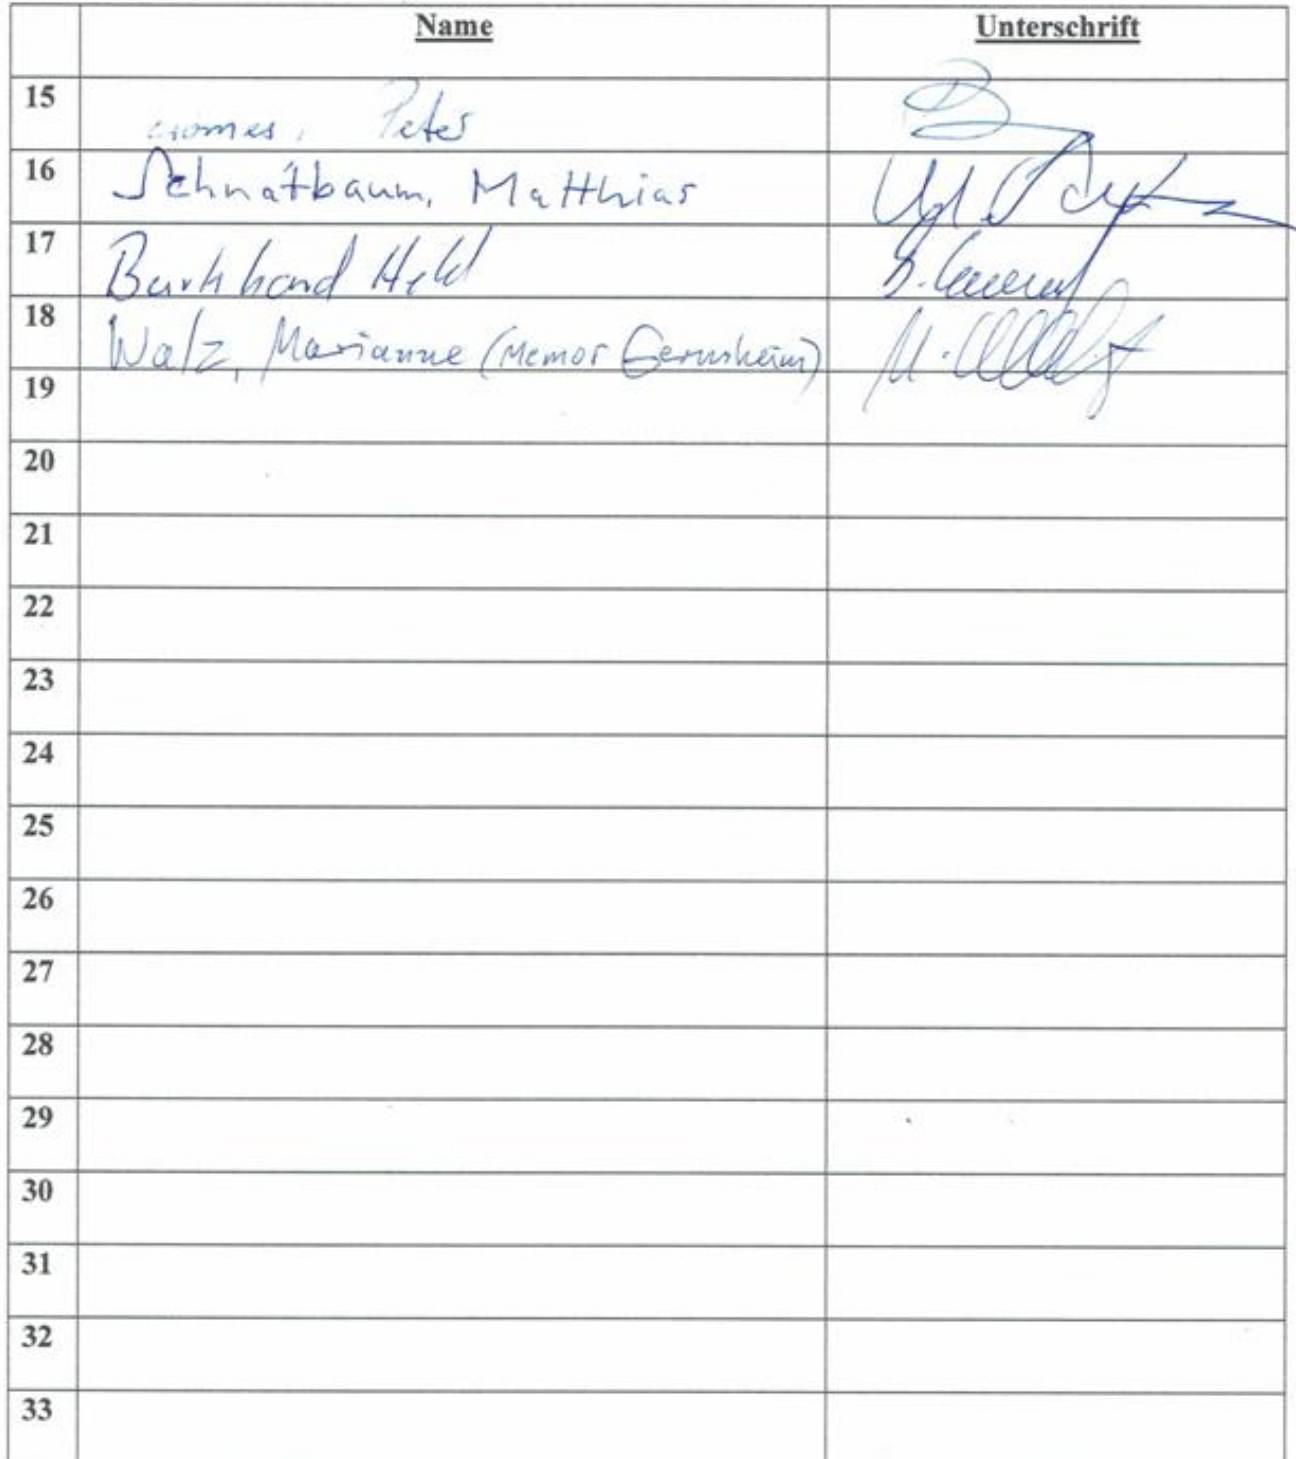 Name Unterschrift
15 Peter
16 Schnatbaum, Matthias
17 Burkhard Held
18 Walz, Marianne (Memor Gernsheim)
19
20
21
22
23
24
25
26
27
28
29
30
31
32
33